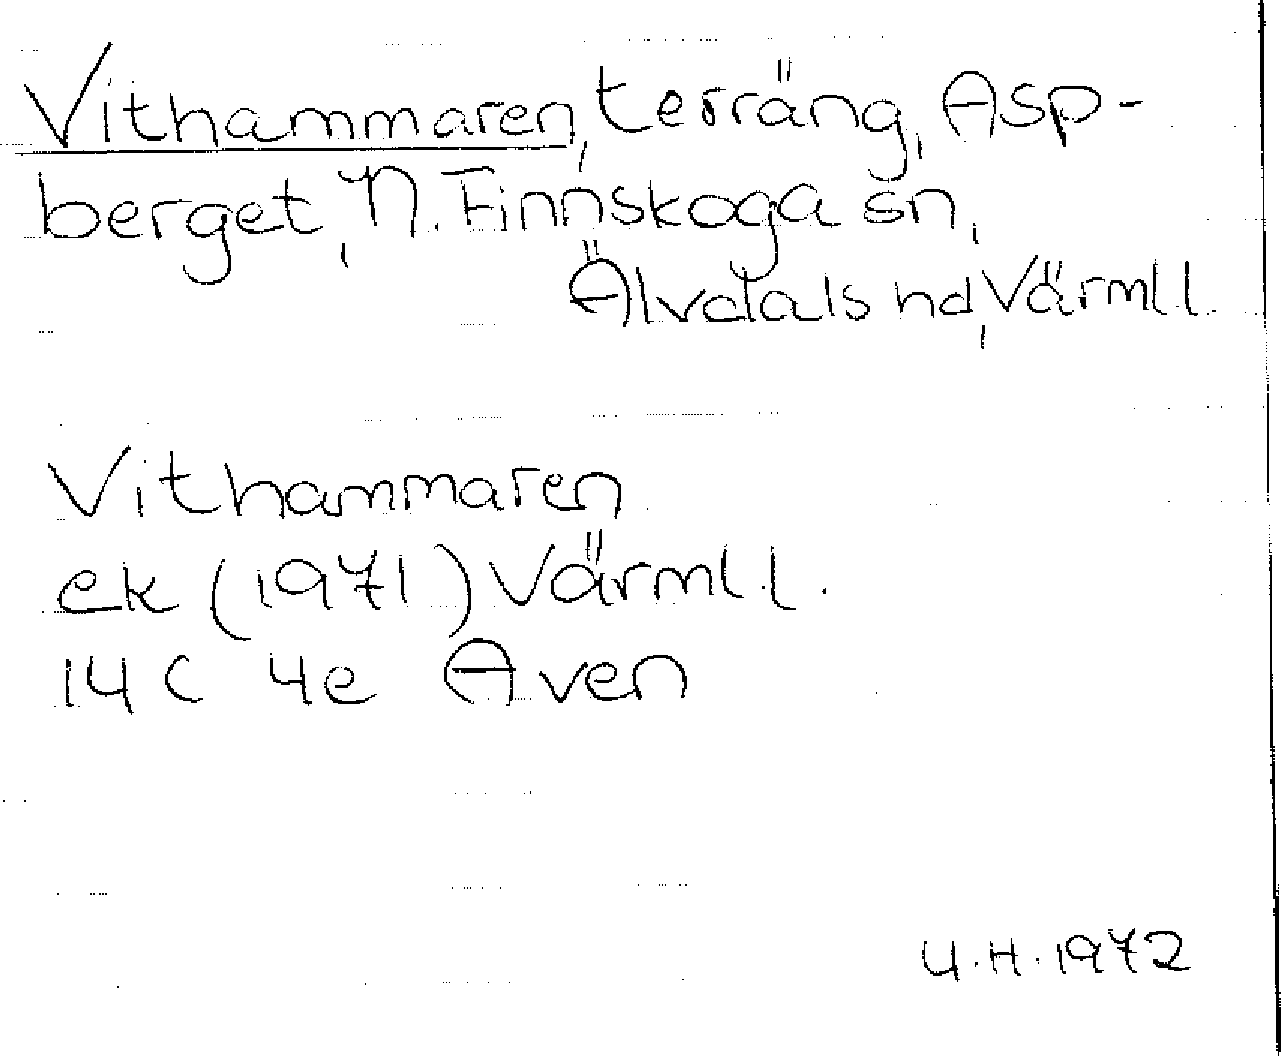 Vithammaren, terräng, Asp-
berget, N. Finnskoga sn,
Älvdals hd, Värml.l.
Vithammaren
ek (1971) Värml.l.
14 C 4e Aven
U.H. 1972